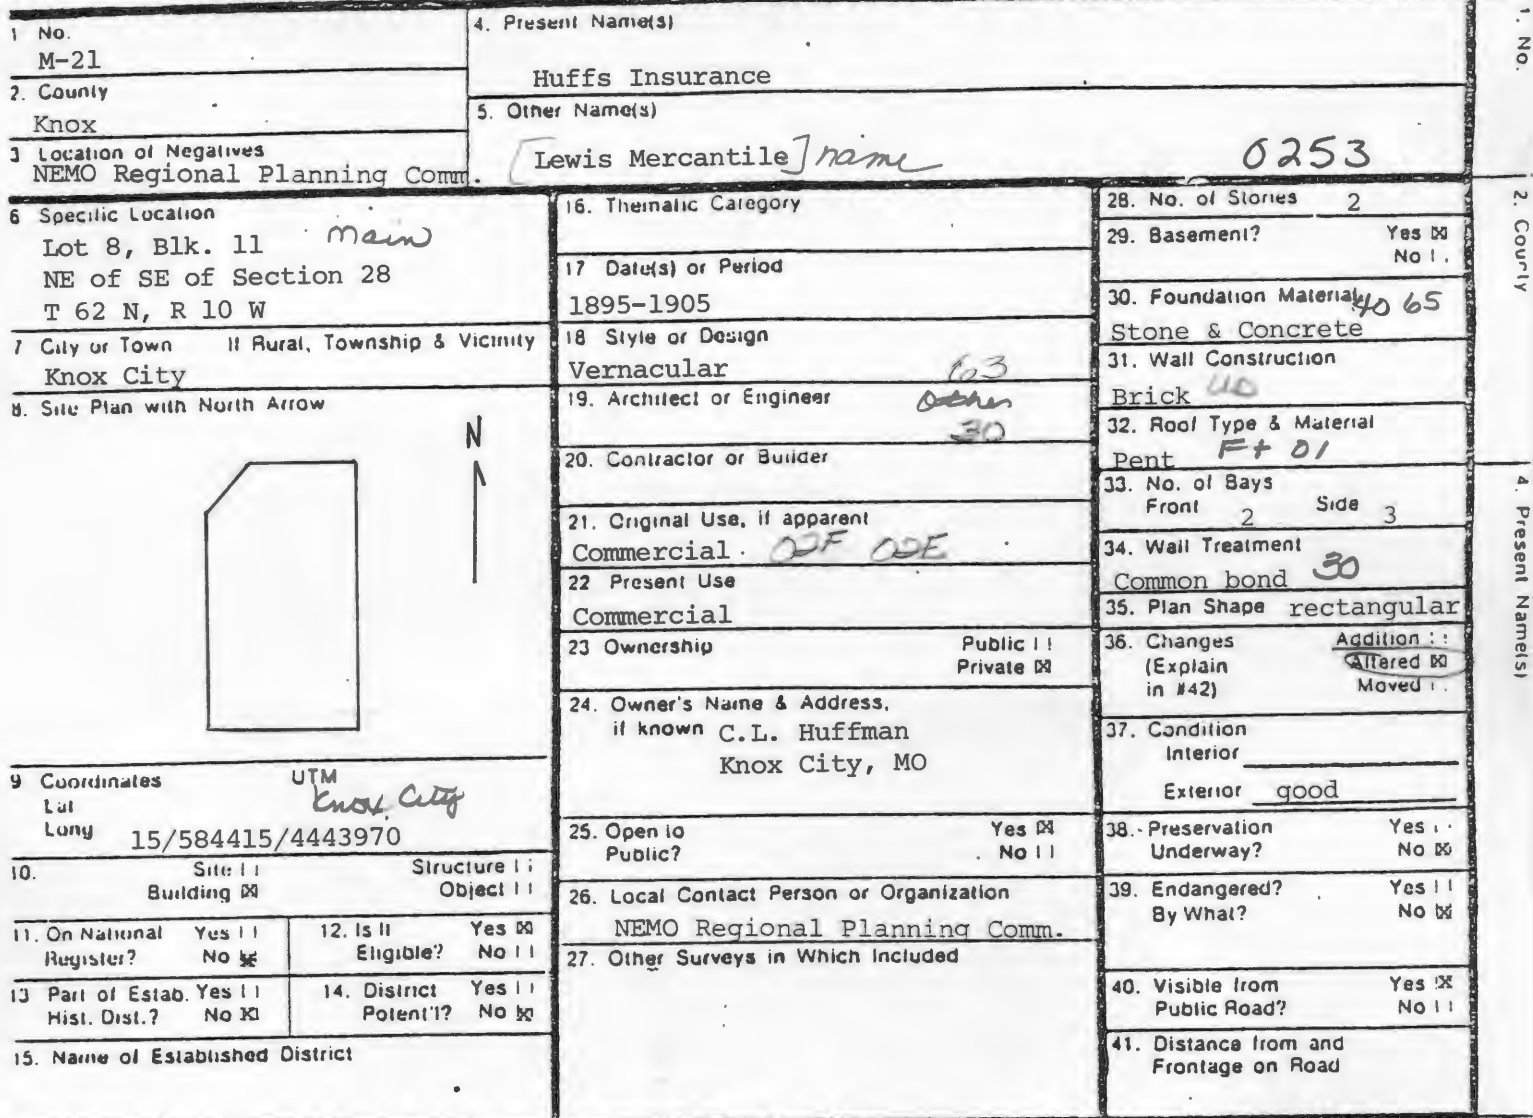 1 No.
M-21
2. County
Knox
3 Location of Negatives
NEMO Regional Planning Comm.
4. Present Name(s)
Huffs Insurance
5. Other Name(s)
[Lewis Mercantile] name
0253
6 Specific Location
Lot 8, Blk. 11 main
NE of SE of Section 28
T 62 N, R 10 W
7 City or Town If Rural, Township & Vicinity
Knox City
8. Site Plan with North Arrow
N
9 Coordinates UTM
Lat Knox City
Long 15/584415/4443970
10. Site Structure
Building ☒ Object
11. On National Register? Yes No ☒
12. Is It Eligible? Yes ☒ No
13 Part of Estab. Hist. Dist.? Yes No ☒
14. District Potent'l? Yes No ☒
15. Name of Established District
16. Thematic Category
17 Date(s) or Period
1895-1905
18 Style or Design
Vernacular 63
19. Architect or Engineer Other
30
20. Contractor or Builder
21. Original Use, if apparent
Commercial 02F 02E
22 Present Use
Commercial
23 Ownership Public
Private ☒
24. Owner's Name & Address,
if known C.L. Huffman
Knox City, MO
25. Open to Yes ☒
Public? No
26. Local Contact Person or Organization
NEMO Regional Planning Comm.
27. Other Surveys in Which Included
28. No. of Stories 2
29. Basement? Yes ☒
No
30. Foundation Material 40 65
Stone & Concrete
31. Wall Construction
Brick
32. Roof Type & Material
Pent Ft 01
33. No. of Bays
Front 2 Side 3
34. Wall Treatment
Common bond 30
35. Plan Shape rectangular
36. Changes Addition
(Explain Altered ☒
in #42) Moved
37. Condition
Interior
Exterior good
38. Preservation Yes
Underway? No ☒
39. Endangered? Yes
By What? No ☒
40. Visible from Yes ☒
Public Road? No
41. Distance from and
Frontage on Road
1. No.
2. County
4. Present Name(s)